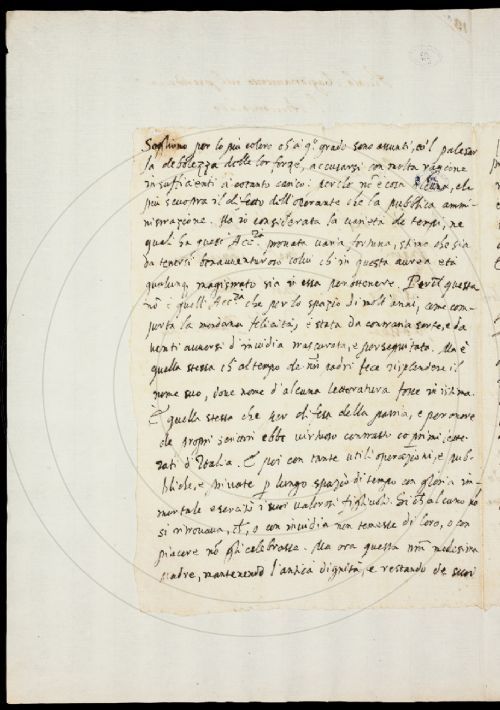 Sogliono per lo più coloro ch'a q.o grado sono assunti, col palesar
la debolezza delle lor forze, accusarsi con molta ragione
insufficienti a cotanto carico: perche nō è cosa alcuna, che
più scuopra il difetto dell'operante che la pubblica ammi-
nistrazione. Ma io considerata la varietà de tempi, ne
quali ha questa Acc.a prouata varia fortuna, stimo che sia
da tenersi bonauuenturoso colui ch'in questa aurea età
qualunq magistrato sia in essa per ottenere. Perch questa
nō è quell'Acc.a che per lo spazio di molt'anni, come com-
porta la mondana felicità, è stata da contraria sorte, e da
uenti auuersi d'inuidia trascurata, e perseguitata. Ma è
quella stessa ch al tempo de nrī padri fece risplendere il
nome suo, doue nome d'alcuna letteratura fosse in istima.
È quella stessa che per difesa della patria, e per onore
de propri scrittori ebbe uirtuoso contrasto co primi lette-
rati d'Italia. E poi con tante utili operazioni, e pub-
bliche, e priuate p lungo spazio di tempo con gloria im-
mortale esercitò i suoi ualorosi figliuoli. Si ch alcuno nō
si ritrouaua, ch, o con inuidia non temesse di loro, o con
piacere nō gli celebrasse. Ma ora questa nrā medesima
Madre, mantenendo l'antica dignità, e restando de suoi